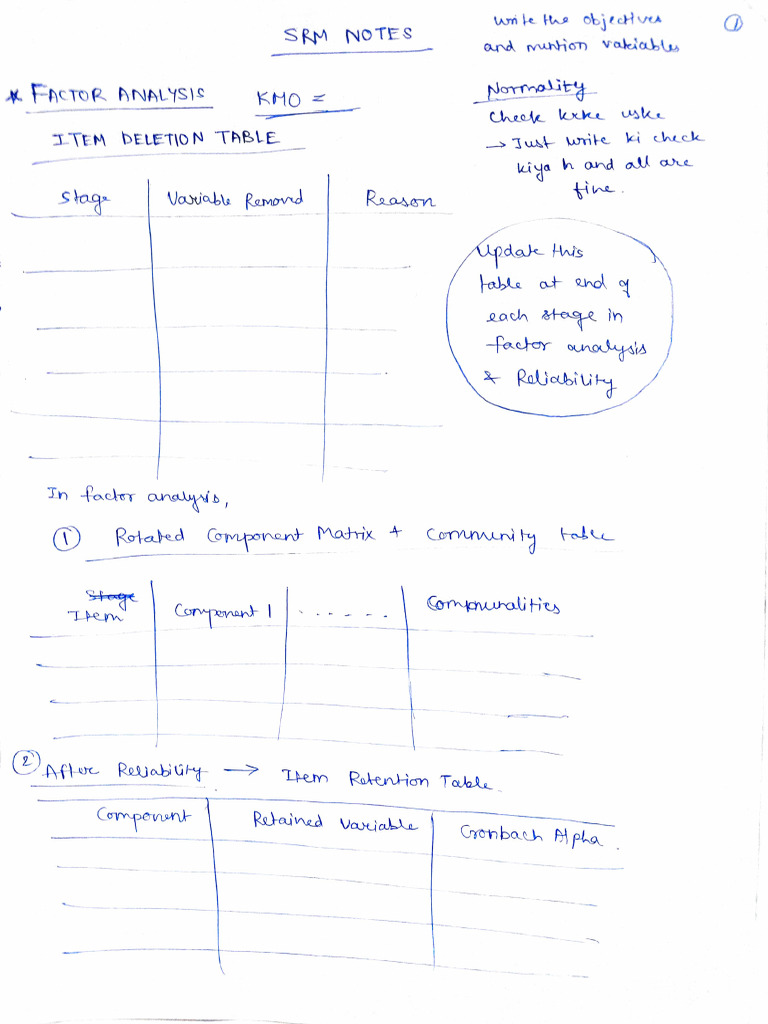 SRM NOTES
write the objectives
and mention variables
①
* FACTOR ANALYSIS
KMO =
Normality
Check krke uske
→ Just write ki check
kiya h and all are
fine.
ITEM DELETION TABLE
Stage
Variable Removed
Reason
Update this
table at end of
each stage in
factor analysis
& Reliability
In factor analysis,
① Rotated Component Matrix + Community table
Stage
Item
Component 1
.......
Communalities
② After Reliability → Item Retention Table.
Component
Retained Variable
Cronbach Alpha.